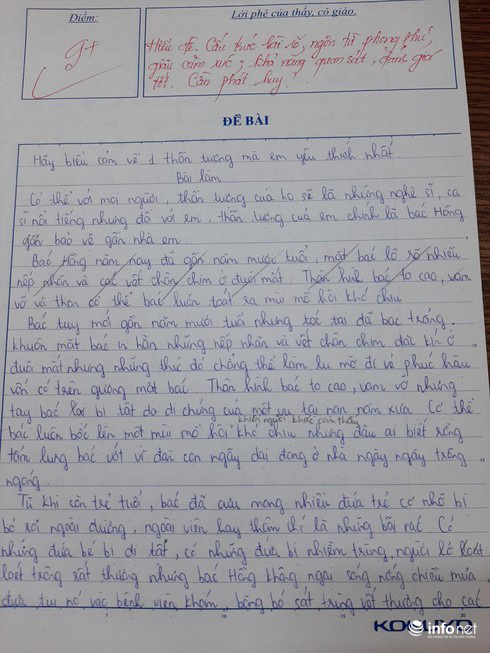 Điểm:
Lời phê của thầy, cô giáo.
9+
Hiểu đề. Cấu trúc bài rõ, ngôn từ phong phú,
giàu cảm xúc, khả năng quan sát, đánh giá
tốt. Cần phát huy!
ĐỀ BÀI
Hãy biểu cảm về 1 thần tượng mà em yêu thích nhất
Bài làm
Có thể với mọi người, thần tượng của họ sẽ là những nghệ sĩ, ca
sĩ nổi tiếng nhưng đối với em, thần tượng của em chính là bác Hồng
gần bảo vệ gần nhà em.
Bác Hồng năm nay đã gần năm mươi tuổi, mặt bác lộ rõ nhiều
nếp nhăn và các vết chân chim ở đuôi mắt. Thân hình bác to cao, vạm
vỡ và thân cơ thể bác luôn toát ra mùi mồ hôi khó chịu
Bác tuy mới gần năm mươi tuổi nhưng tóc tai đã bạc trắng,
khuôn mặt bác in hằn những nếp nhăn và vết chân chim dài kín ở
đuôi mắt nhưng những thứ đó chẳng thể làm lu mờ đi vẻ phúc hậu
vốn có trên gương mặt bác. Thân hình bác to cao, vạm vỡ nhưng
tay bác lại bị tật do di chứng của một vụ tai nạn năm xưa. Cơ thể
khiến người khác cảm thấy
bác luôn bốc lên một mùi mồ hôi khó chịu nhưng đâu ai biết rằng
tấm lưng bác vớt vì đàn con ngây dại đang ở nhà ngày ngày trông
ngóng.
Từ khi còn trẻ tuổi, bác đã cưu mang nhiều đứa trẻ cơ nhỡ bị
bỏ rơi ngoài đường, ngoài viện hay thậm chí là những bãi rác. Có
những đứa bé bị dị tật, có những đứa bị nhiễm trùng, người lở loét
loét trông rất thương nhưng bác Hồng không ngại sáng, nắng chiều mưa
đưa tụi nó vào bệnh viện khám, băng bó sát trùng vết thương cho các
KOKUYO
infonet